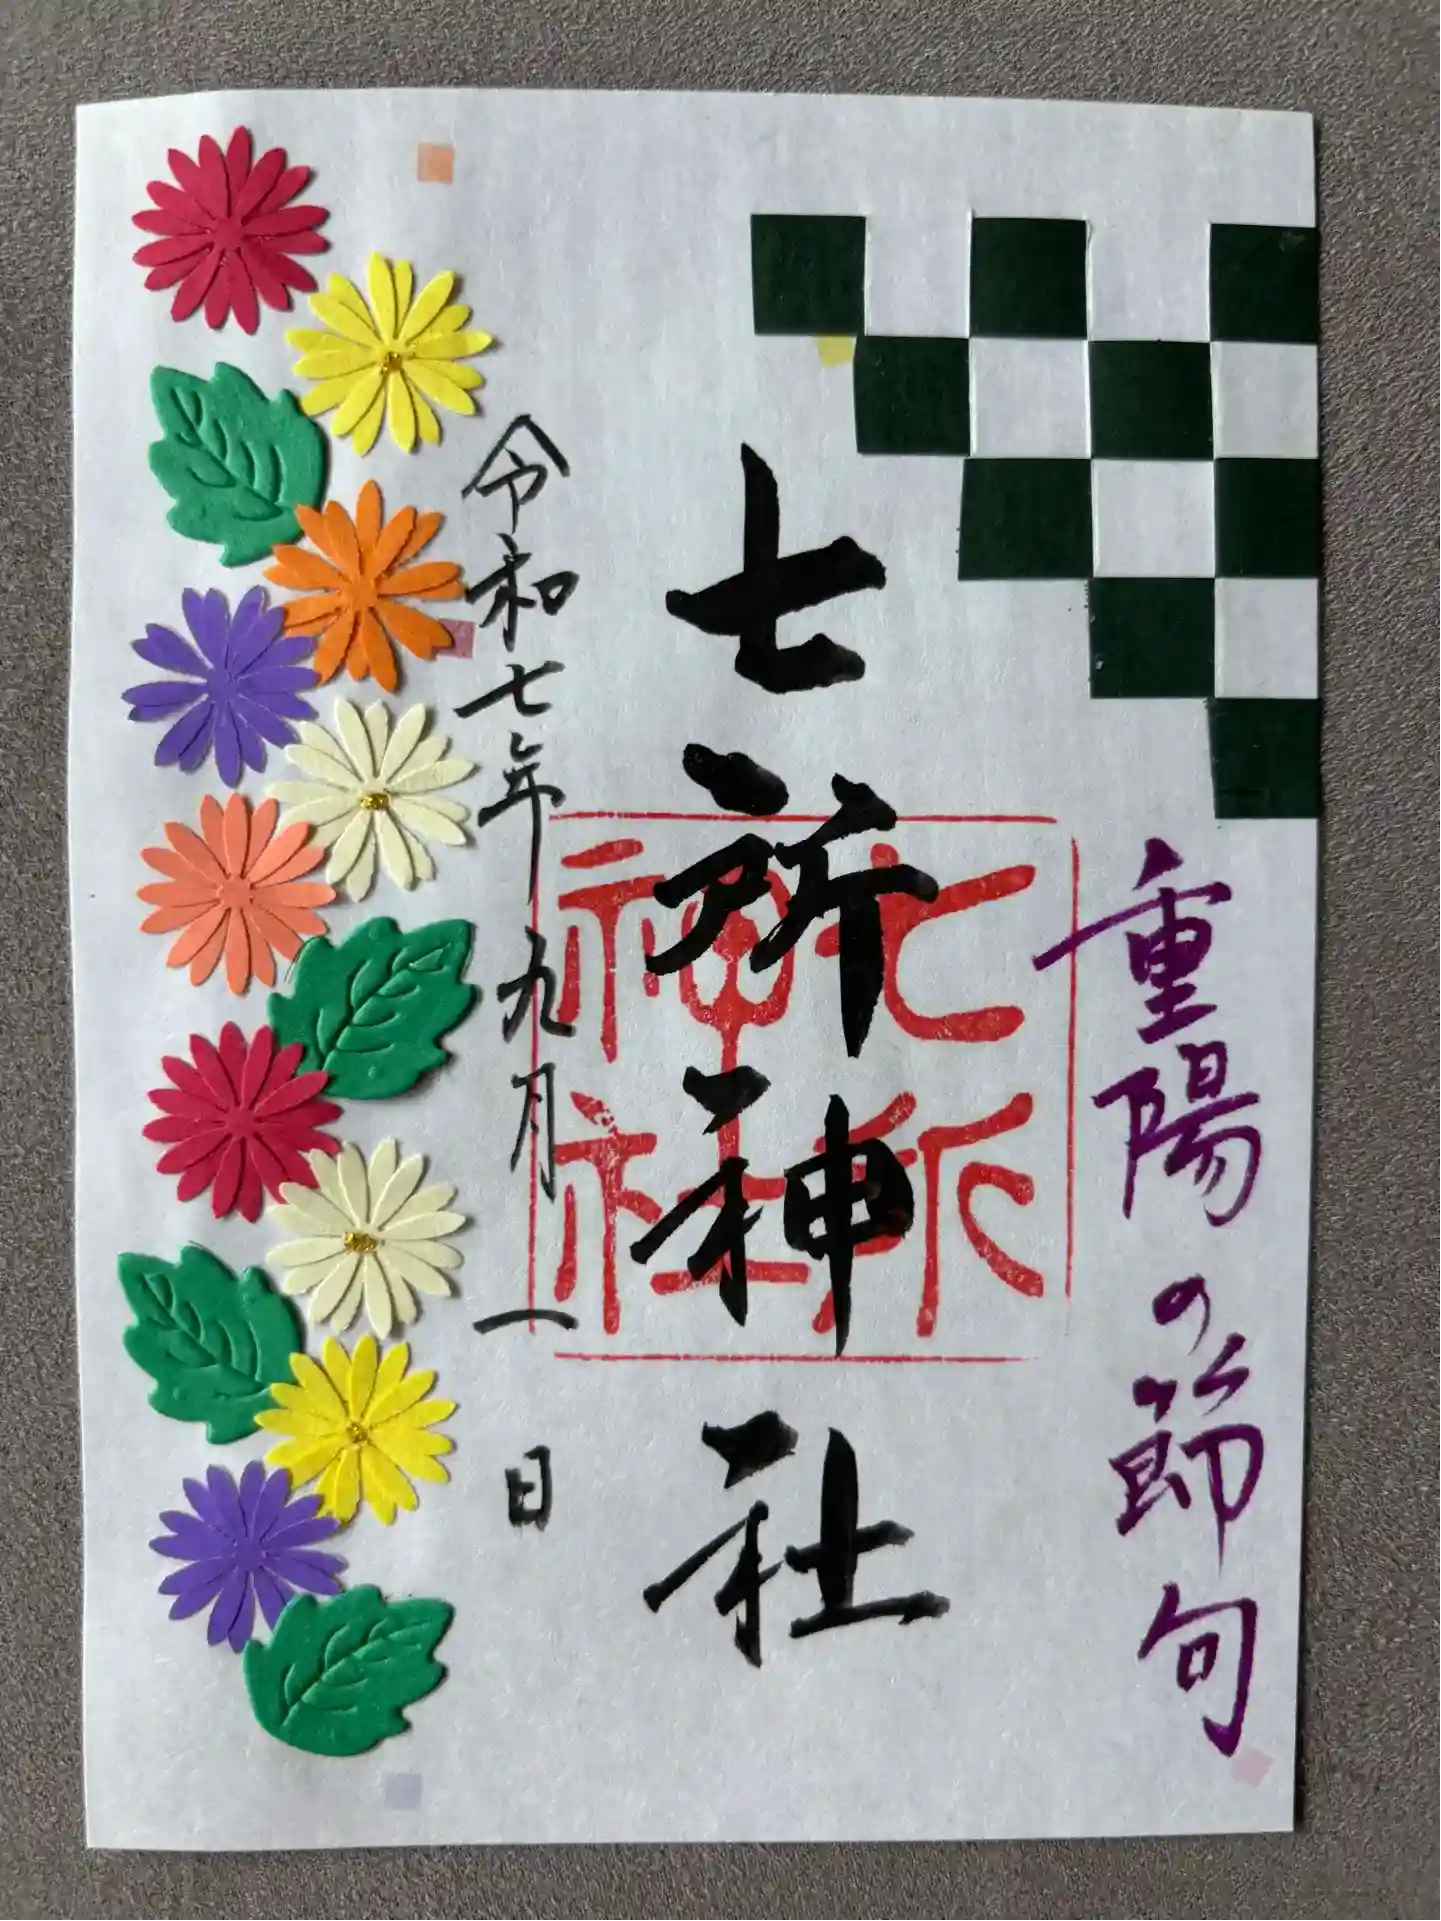 重陽の節句
七所神社
七所神社
令和七年九月一日